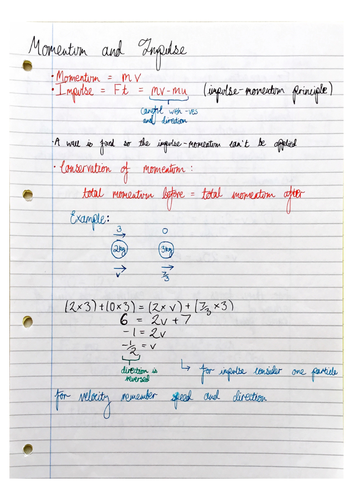 Momentum and Impulse
• Momentum = mv
• Impulse = Ft = mv-mu (impulse-momentum principle)
careful with -ves
and direction
• A wall is fixed so the impulse-momentum can't be applied
• Conservation of momentum:
total momentum before = total momentum after
Example:
3 0
2kg 3kg
v 7/3
(2×3)+(0×3) = (2×v)+(7/3×3)
6 = 2v+7
-1 = 2v
-1/2 = v
direction is
reversed
↳ for impulse consider one particle
for velocity remember speed and direction